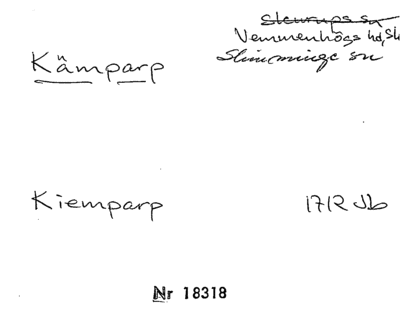 Skurups sn
Vemmenhögs hd, Sk
Kämparp
Slimminge sn
Kiemparp 1712 Jb
Nr 18318